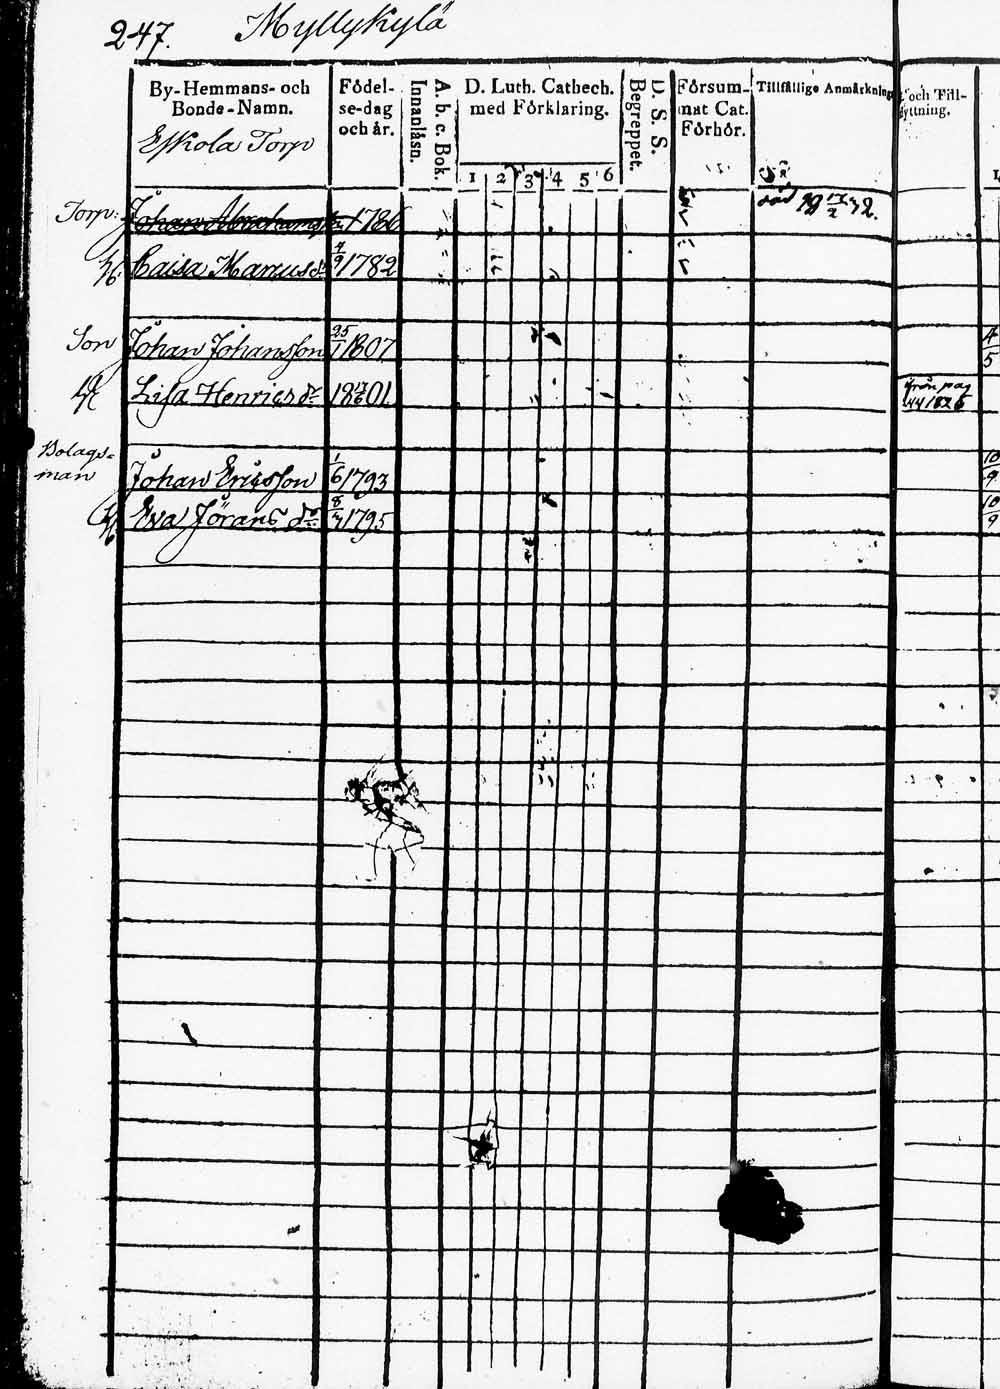 247. Myllykylä
By-Hemmans- och
Bonde-Namn.
Eskola Torp
Födel-
se-dag
och år.
Innanläsn.
A. b. c. Bok.
D. Luth. Cathech.
med Förklaring.
1 2 3 4 5 6
D. S. S.
Begreppet.
Försum-
mat Cat.
Förhör.
Tillfällige Anmärkning
och Till-
flyttning.
Torp: Johan Abrahamsson 1786
död
H. Caisa Marcusdr 4/9 1782
Son Johan Johansson 25/1 1807
H. Lisa Henricsdr 1801
från pag
1826
4
5
Bolags-
man
Johan Ericsson 1/6 1793
10
9
H. Eva Jörans dr 8/3 1795
10
9